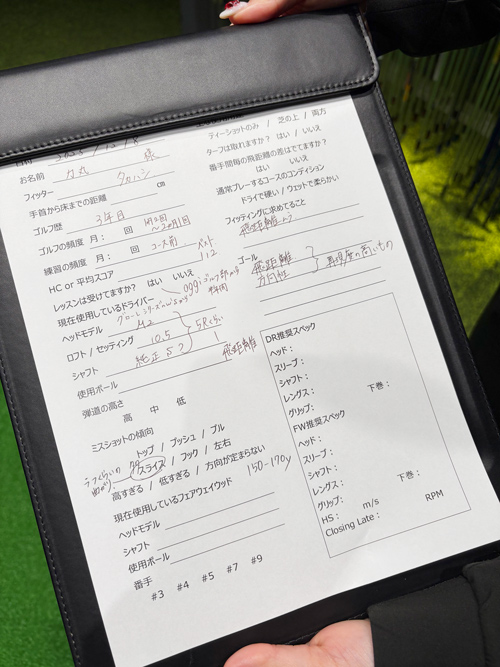 2025 / 12 / 18
お名前 力丸 様
フィッター タカハシ
手首から床までの距離 cm
ゴルフ歴 3年目
ゴルフの頻度 月： 回
練習の頻度 月： 回 コース前
HC or 平均スコア ベスト 112
レッスンは受けてますか？ はい いいえ
現在使用しているドライバー
ヘッドモデル
ロフト / セッティング 10.5
シャフト 純正
使用ボール
飛距離
弾道の高さ
高 中 低
ミスショットの傾向
トップ / プッシュ / プル
スライス / フック / 左右
高すぎる / 低すぎる / 方向が定まらない
150-170y
現在使用しているフェアウェイウッド
ヘッドモデル
シャフト
使用ボール
番手
#3 #4 #5 #7 #9
ティーショットのみ / 芝の上 / 両方
ターフは取れますか？ はい / いいえ
番手間毎の飛距離の差はでてますか？
はい いいえ
通常プレーするコースのコンディション
ドライで硬い / ウェットで柔らかい
フィッティングに求めてること
飛距離
ゴール
飛距離
方向性
再現度の高いもの
DR推奨スペック
ヘッド：
スリーブ：
シャフト：
レングス： 下巻：
グリップ：
FW推奨スペック
ヘッド：
スリーブ：
シャフト：
レングス： 下巻：
グリップ：
HS： m/s RPM
Closing Late：